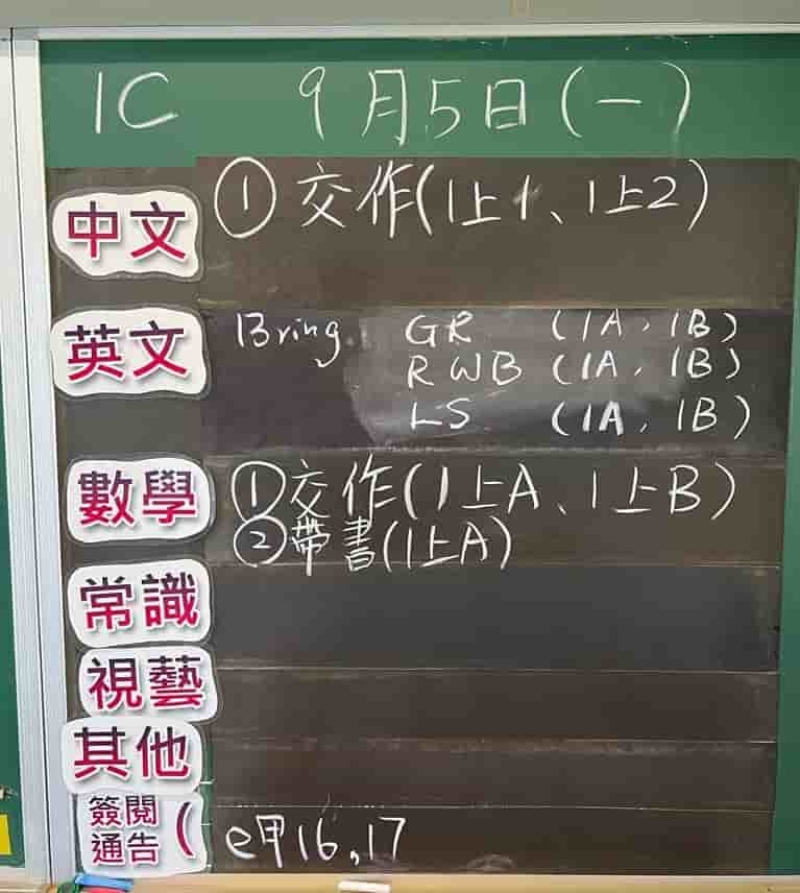 1C 9月5日(一)
中文 ①交作(1上1、1上2)
英文 Bring GR (1A, 1B)
RWB (1A, 1B)
LS (1A, 1B)
數學 ①交作(1上A、1上B)
②帶書(1上A)
常識
視藝
其他
簽閱
通告( e甲16,17